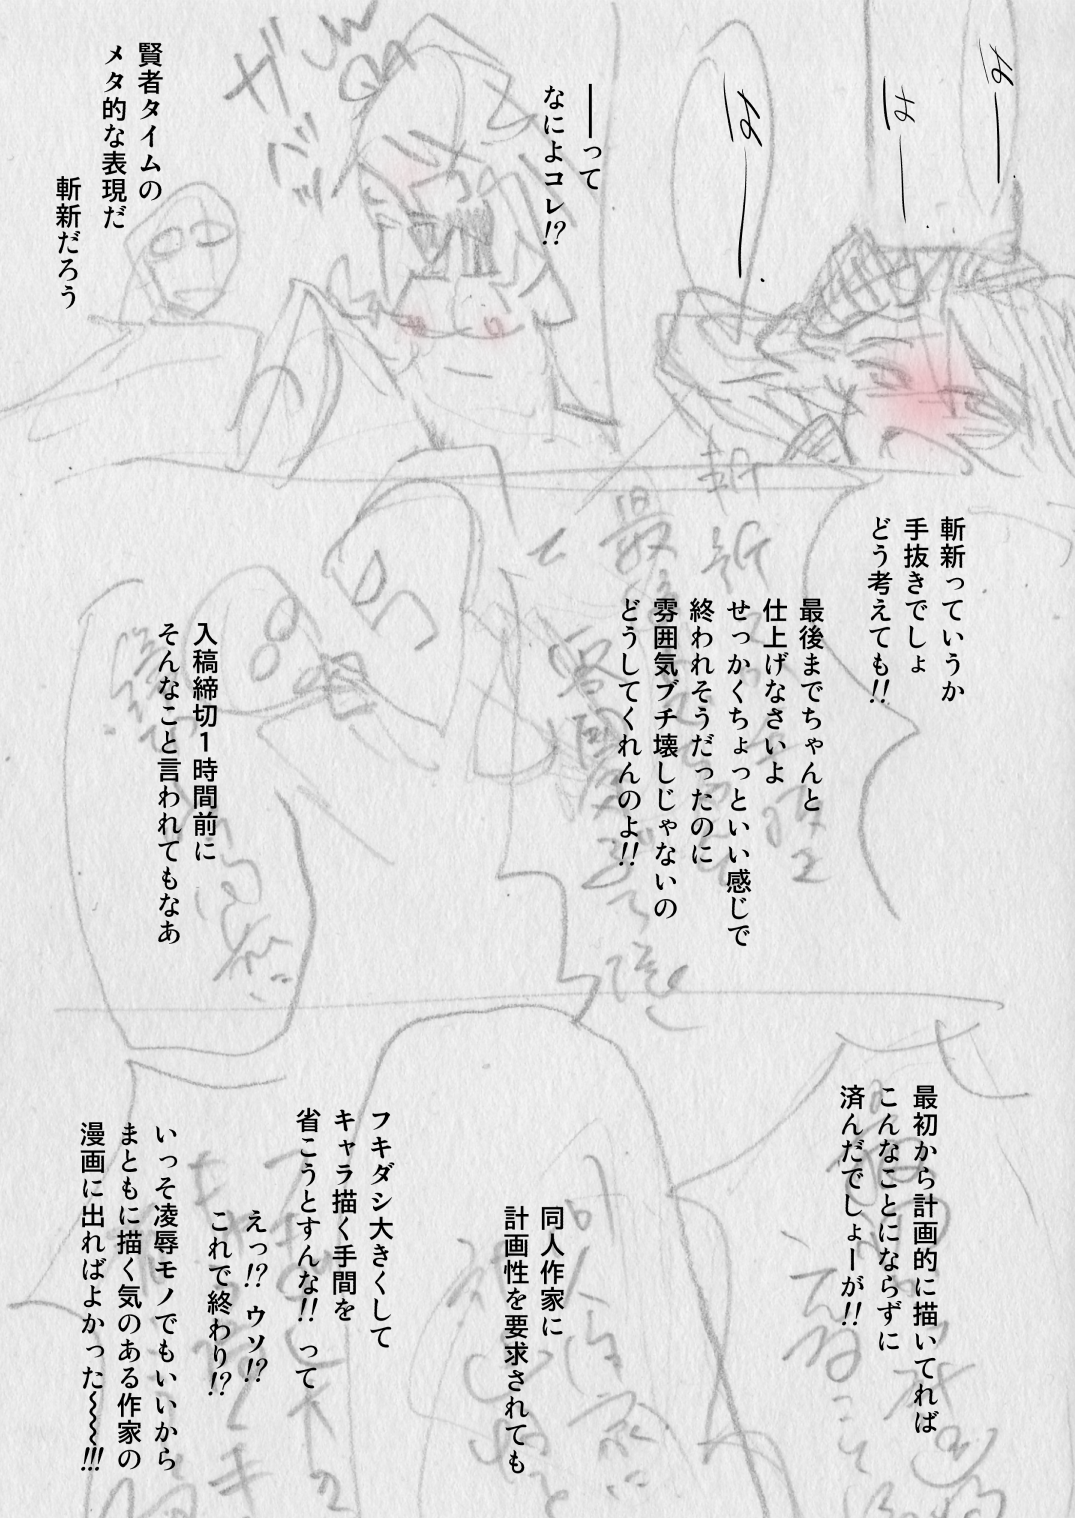 はー
はー
はー
――って
なによコレ!?
賢者タイムの
メタ的な表現だ
斬新だろう
斬新っていうか
手抜きでしょ
どう考えても!!
最後までちゃんと
仕上げなさいよ
せっかくちょっといい感じで
終われそうだったのに
雰囲気ブチ壊しじゃないの
どうしてくれんのよ!!
入稿締切1時間前に
そんなこと言われてもなあ
最初から計画的に描いてれば
こんなことにならずに
済んだでしょーが!!
同人作家に
計画性を要求されても
フキダシ大きくして
キャラ描く手間を
省こうとすんな!! って
えっ!? ウソ!?
これで終わり!?
いっそ凌辱モノでもいいから
まともに描く気のある作家の
漫画に出ればよかった〜〜〜!!!